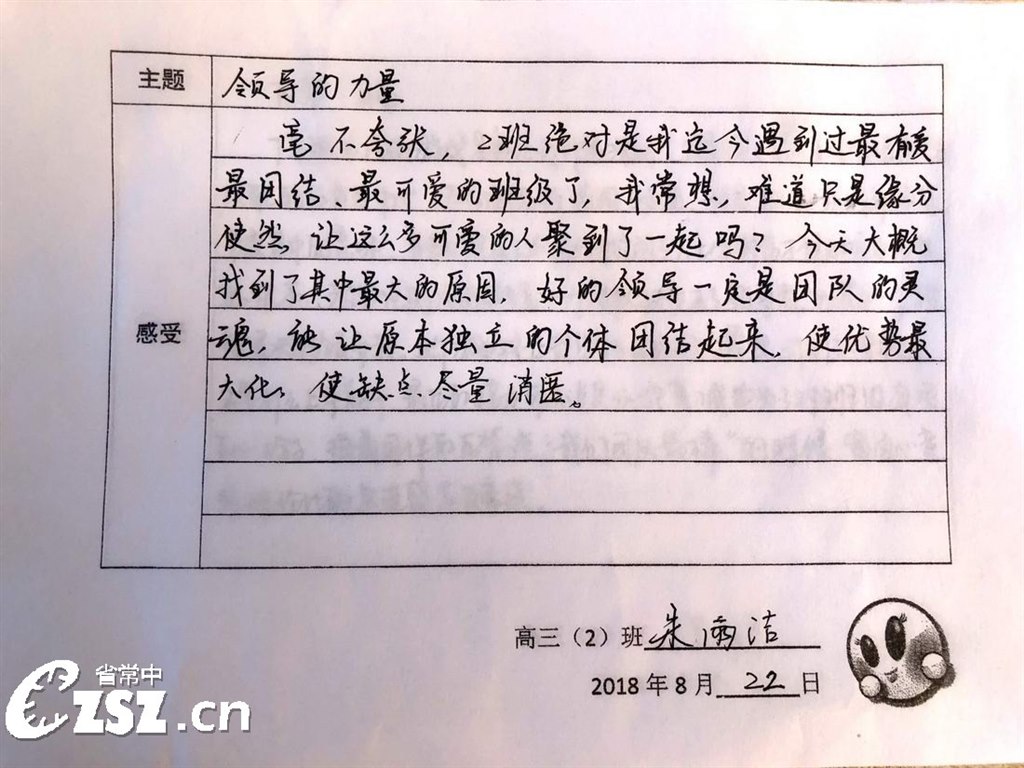 主题 领导的力量
毫不夸张，2班绝对是我迄今遇到过最有爱
最团结、最可爱的班级了，我常想，难道只是缘分
使然，让这么多可爱的人聚到了一起吗？今天大概
找到了其中最大的原因，好的领导一定是团队的灵
感受 魂，能让原本独立的个体团结起来，使优势最
大化，使缺点尽量消匿。
高三（2）班 朱雨洁
2018年8月 22 日
省常中
CZSZ.cn